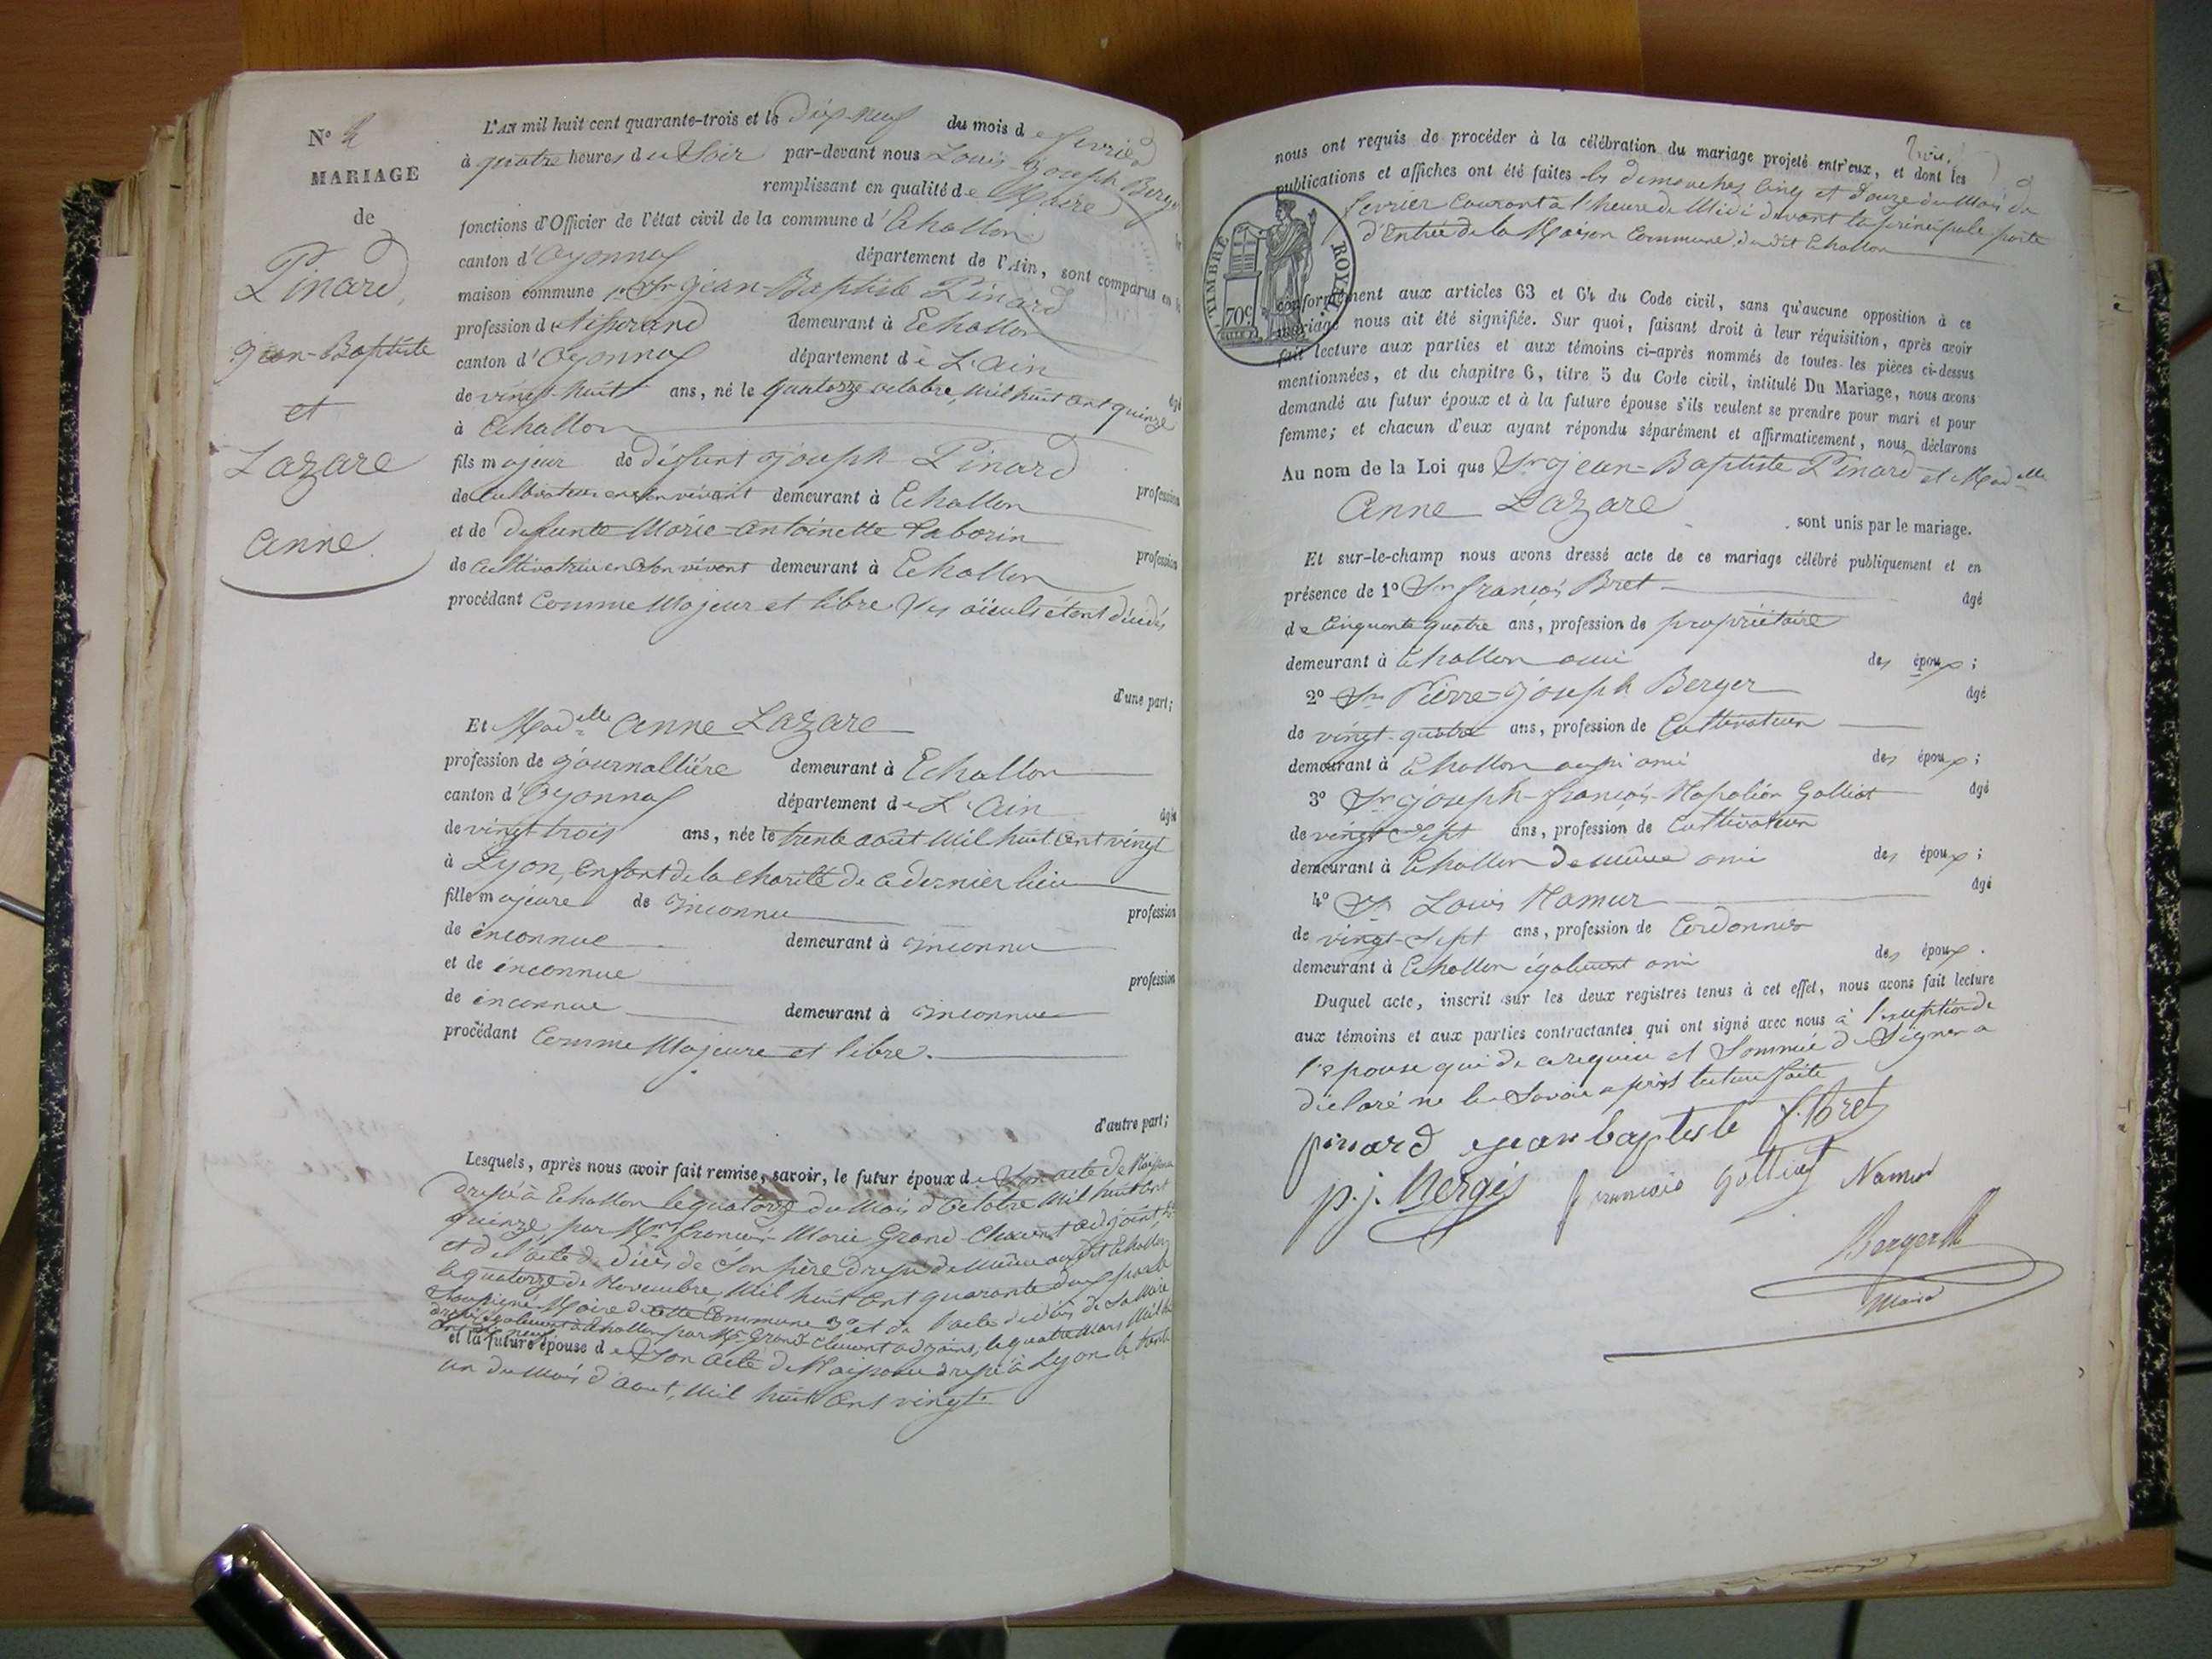 N° 2
MARIAGE
de
Pinard,
Jean-Baptiste
et
Lazare
Anne.
L'AN mil huit cent quarante-trois et le dix-neuf du mois de fevrier
à quatre heures du Soir par-devant nous Louis-Joseph Berger
remplissant en qualité de Maire les
fonctions d'Officier de l'état civil de la commune d'Echallon
canton d'Oyonnax département de l'Ain, sont comparus en la
maison commune 1° Sr Jean-Baptiste Pinard
profession de tisserand demeurant à Echallon
canton d'Oyonnax département de L'Ain
âgé
de vingt-huit ans, né le quatorze octobre, mil huit cent quinze
à Echallon
fils majeur de défunt Joseph Pinard
profession
de Cultivateur en son vivant demeurant à Echallon
et de defunte Marie-Antoinette Taborin
profession
de Cultivatrice en Son vivant demeurant à Echallon
procédant Comme Majeur et libre Ses aïeuls étant décédés
d'une part;
Et Madelle Anne Lazare
profession de journallière demeurant à Echallon
canton d'Oyonnax département de L'Ain
âgée
de vingt-trois ans, née le trente août mil huit cent vingt
à Lyon, Enfant de la charité de ce dernier lieu
fille majeure de inconnu
profession
de inconnue demeurant à inconnu
et de inconnue
profession
de inconnue demeurant à inconnue
procédant Comme Majeure et libre.
d'autre part;
Lesquels, après nous avoir fait remise, savoir, le futur époux de Son acte de Naissance
dressé à Echallon le quatorze du Mois d'Octobre Mil huit cent
quinze par Mr françois-Marie Grand-Clément adjoint, 2°
et de l'acte de décès de Son père dressé de même au dit Echallon
le quatorze de Novembre Mil huit cent quarante deux par le
Soussigné Maire de cette Commune 3° et de l'acte de décès de Sa Mère
dressé également à Echallon par Mr Grand-Clément adjoint, le quatre Mars Mil huit
cent neuf
et la future épouse de Son acte de Naissance dressé à Lyon le trente
un du Mois d'aout, Mil huit cent vingt.
nous ont requis de procéder à la célébration du mariage projeté entr'eux, et dont les
publications et affiches ont été faites les dimanches Cinq et douze du Mois de
fevrier Courant à l'heure de Midi devant la principale porte
d'Entrée de la Maison Commune du dit Echallon
TIMBRE ROYAL
70c
conformément aux articles 63 et 64 du Code civil, sans qu'aucune opposition à ce
mariage nous ait été signifiée. Sur quoi, faisant droit à leur réquisition, après avoir
fait lecture aux parties et aux témoins ci-après nommés de toutes les pièces ci-dessus
mentionnées, et du chapitre 6, titre 5 du Code civil, intitulé Du Mariage, nous avons
demandé au futur époux et à la future épouse s'ils veulent se prendre pour mari et pour
femme; et chacun d'eux ayant répondu séparément et affirmativement, nous déclarons
Au nom de la Loi que Sr Jean-Baptiste Pinard et Madelle
Anne Lazare
sont unis par le mariage.
Et sur-le-champ nous avons dressé acte de ce mariage célébré publiquement et en
présence de 1° Sr françois Bret âgé
de Cinquante quatre ans, profession de propriétaire
demeurant à Echallon ami des époux;
2° Sr Pierre-Joseph Berger âgé
de vingt-quatre ans, profession de Cultivateur
demeurant à Echallon aussi ami des époux;
3° Sr Joseph-françois-Napoléon Golliat âgé
de vingt Sept ans, profession de Cultivateur
demeurant à Echallon de même ami des époux;
4° Sr Louis Namur âgé
de vingt-Sept ans, profession de Cordonnier
demeurant à Echallon également ami des époux.
Duquel acte, inscrit sur les deux registres tenus à cet effet, nous avons fait lecture
aux témoins et aux parties contractantes qui ont signé avec nous à l'exception de
l'épouse qui de ce requise et Sommée de Signer a
déclaré ne le Savoir après lecture faite
pinard jean baptiste f. bret
p. j. Berger francois Golliat Namur
Berger
Maire